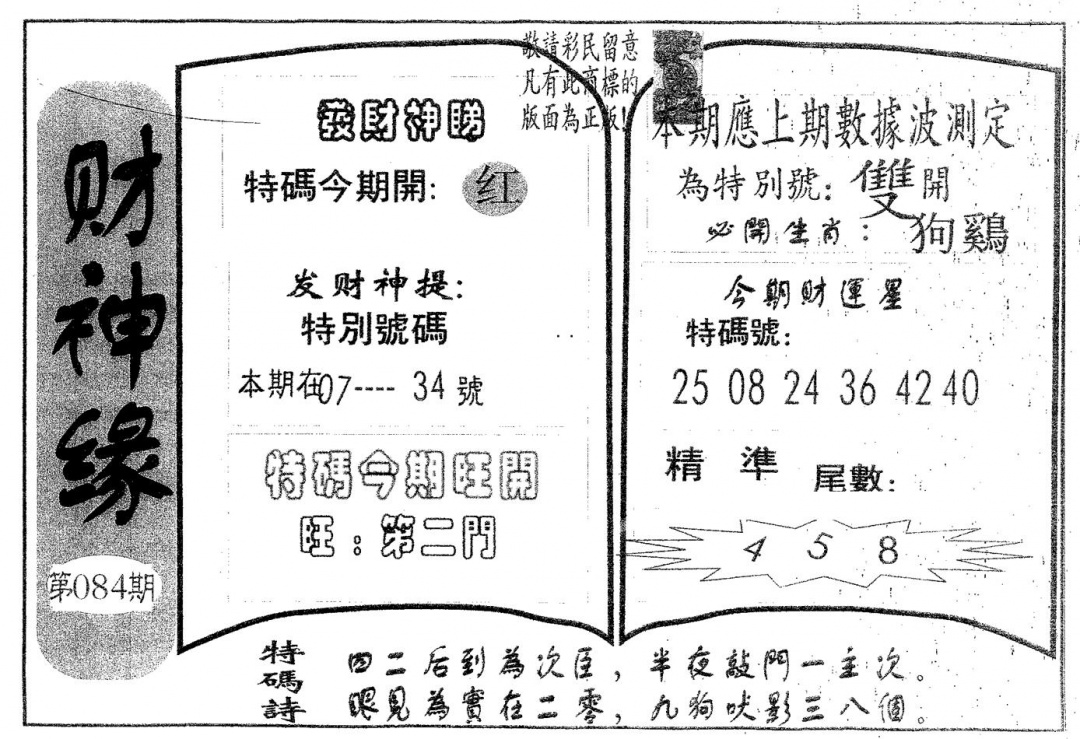 财神缘
第084期
敬請彩民留意
凡有此商標的
版面為正版!
發財神睇
特碼今期開: 红
发财神提:
特別號碼
本期在07---- 34 號
特碼今期旺開
旺:第二門
本期應上期數據波測定
為特別號: 雙開
必開生肖: 狗鷄
今期财運星
特碼號:
25 08 24 36 42 40
精 準 尾數:
4 5 8
特碼詩
四二后到為次臣,半夜敲門一主次。
眼見為實在二零,九狗吠影三八個。